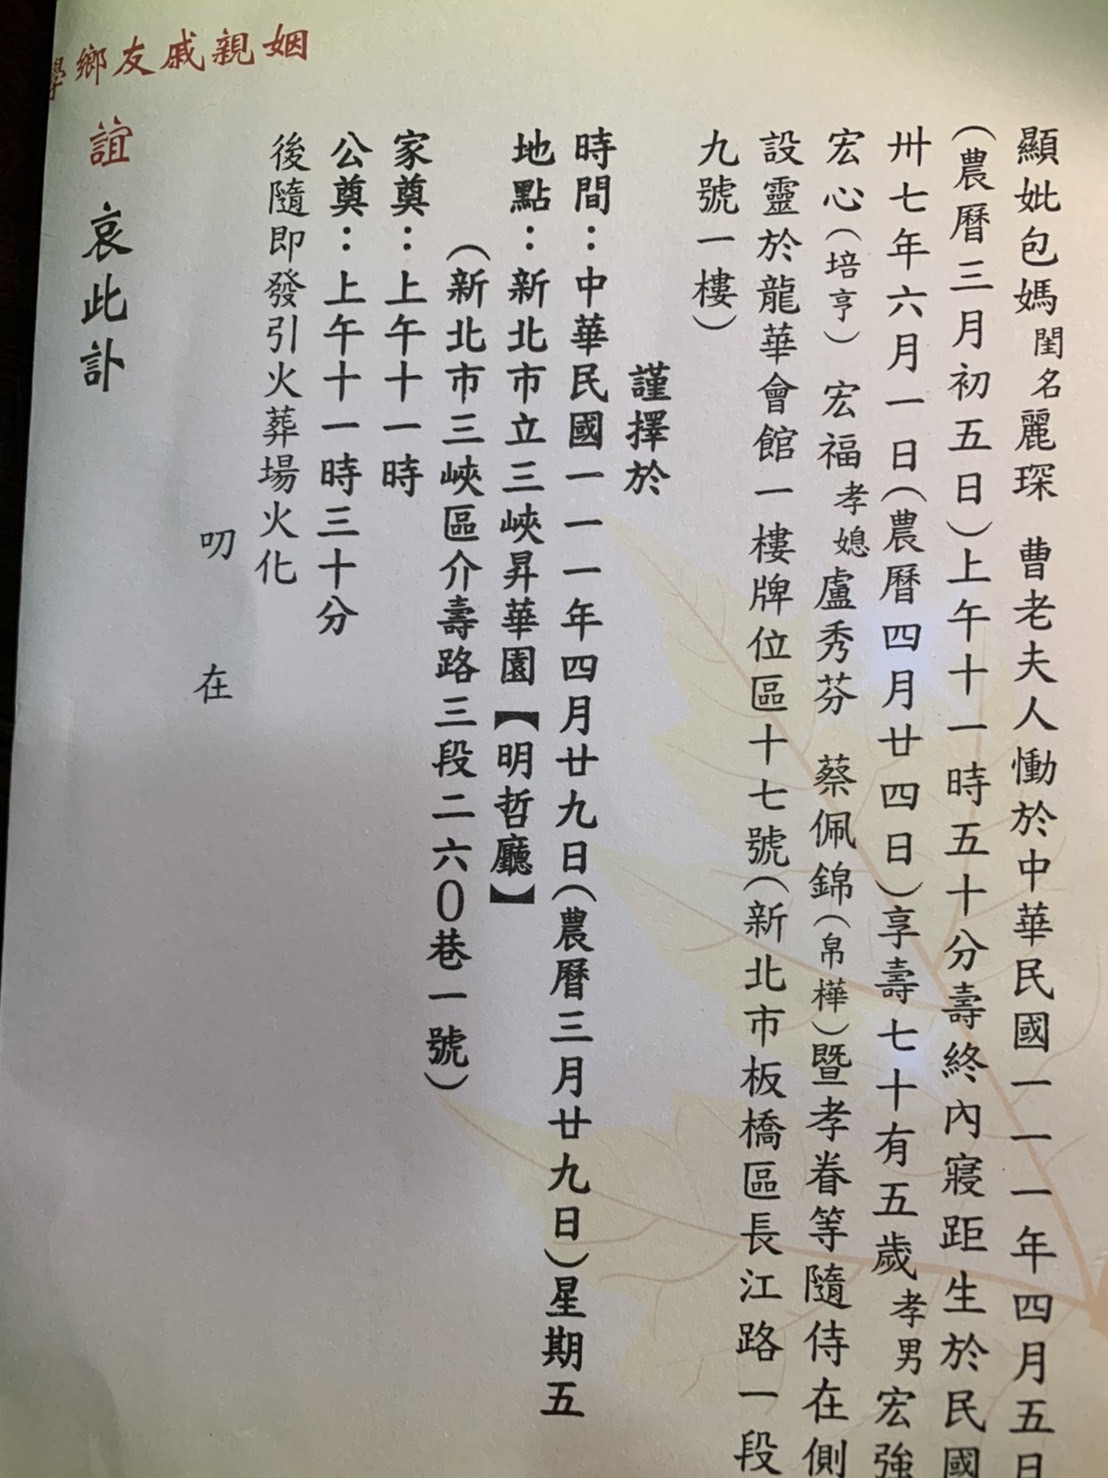 顯妣包媽閨名麗琛 曹老夫人慟於中華民國一一一年四月五日
(農曆三月初五日)上午十一時五十分壽終內寢距生於民國
卅七年六月一日(農曆四月廿四日)享壽七十有五歲孝男宏強
宏心(培亨) 宏福孝媳盧秀芬 蔡佩錦(帛樺)暨孝眷等隨侍在側
設靈於龍華會館一樓牌位區十七號(新北市板橋區長江路一段
九號一樓)
謹擇於
時間:中華民國一一一年四月廿九日(農曆三月廿九日)星期五
地點:新北市立三峽昇華園【明哲廳】
(新北市三峽區介壽路三段二六0巷一號)
家奠:上午十一時
公奠:上午十一時三十分
後隨即發引火葬場火化
叨 在
姻親戚友鄉學
誼 哀此訃